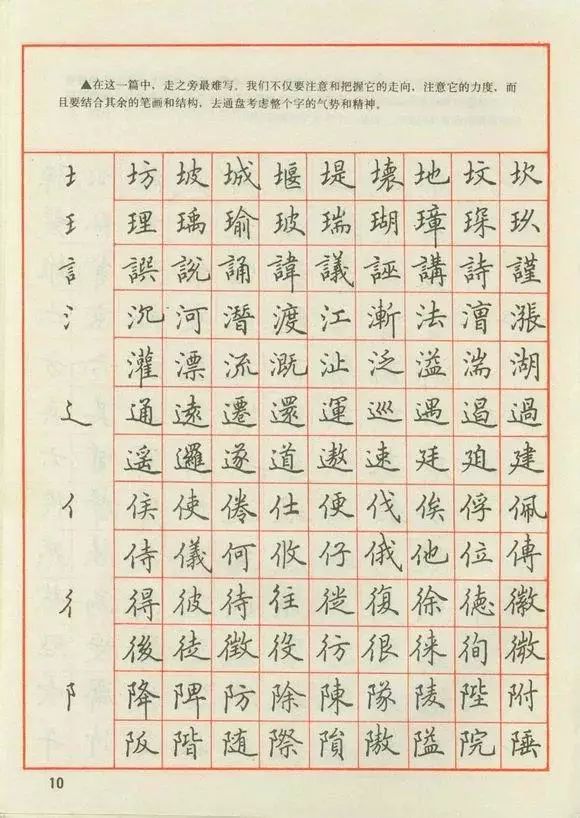 ▲在这一篇中，走之旁最难写。我们不仅要注意和把握它的走向，注意它的力度，而
且要结合其余的笔画和结构，去通盘考虑整个字的气势和精神。
土 坊 坡 城 堰 堤 壞 地 坟 坎
王 理 瑀 瑜 玻 瑞 瑚 璋 琛 玖
訁 譔 說 誦 諱 議 誣 講 詩 謹
氵 沉 河 潛 渡 江 漸 法 漕 漲
灌 漂 流 溉 沚 泛 溢 湍 湖
辶 通 遠 遷 還 運 巡 遇 遏 過
遥 邏 遂 道 遨 速 廷 廸 建
亻 侯 使 倦 仕 便 伐 俟 俘 佩
侍 儀 何 攸 仔 俄 他 位 傳
彳 得 彼 待 往 徙 復 徐 德 徽
後 徒 徵 役 彷 很 徠 徇 微
阝 降 陴 防 除 陳 隊 陵 陛 附
阪 階 随 際 隕 隘 院 陲
10